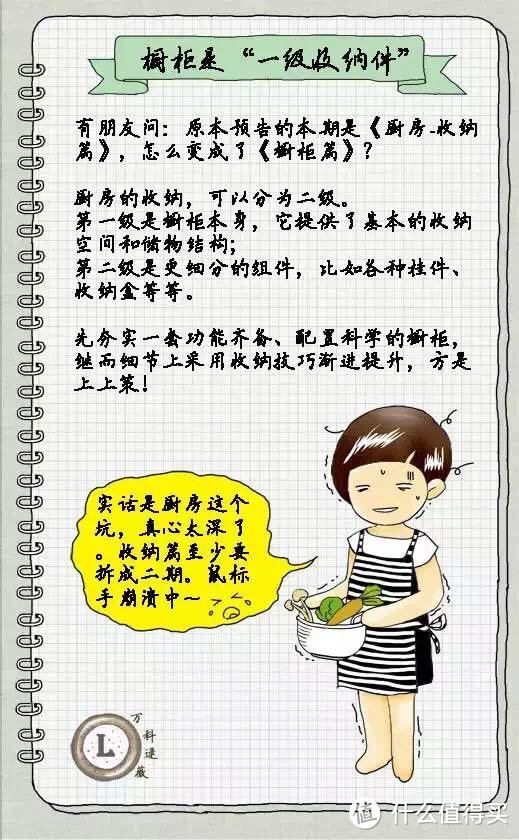 橱柜是“一级收纳件”
有朋友问：原本预告的本期是《厨房-收纳
篇》，怎么变成了《橱柜篇》？
厨房的收纳，可以分为二级。
第一级是橱柜本身，它提供了基本的收纳
空间和储物结构；
第二级是更细分的组件，比如各种挂件、
收纳盒等等。
先夯实一套功能齐备、配置科学的橱柜，
继而细节上采用收纳技巧渐进提升，方是
上上策！
实话是厨房这个
坑，真心太深了
。收纳篇至少要
拆成二期。鼠标
手崩溃中～
万科逯薇
L
值 什么值得买